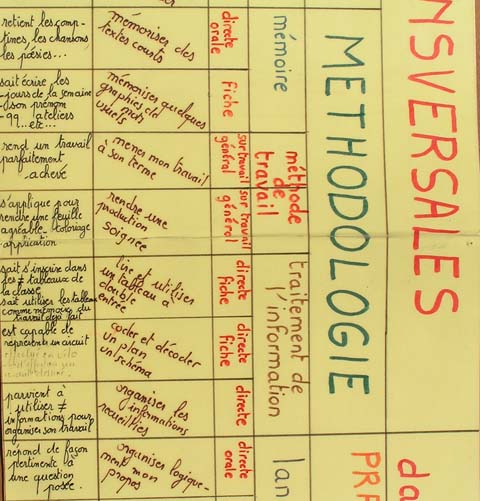 retient les comp-
tines, les chansons
les poésies...
mémoriser des
textes courts
directe
orale
mémoire
sait écrire les
- jours de la semaine
- son prénom
- 99 ateliers
... etc...
mémoriser quelques
graphies de
usuels
fiche
rend un travail
parfaitement
achevé
mener mon travail
à son terme
sur travail
général
méthode
de
travail
s'applique pour
rendre une feuille
agréable - coloriage
application
rendre une
production
soignée
sur travail
général
sait s'inscrire dans
les ≠ tableaux de
la classe
sait utiliser les tableaux
comme mémoires du
travail déjà fait
lire et utiliser
un tableau à
double
entrée
directe
fiche
traitement de
l'information
est capable de
représenter un circuit
coder et décoder
un plan
un schéma
directe
fiche
parvient à
utiliser ≠
informations pour
organiser son travail
organiser les
informations
recueillies
directe
répond de façon
pertinente à
une question
posée.
organiser logique-
ment mon
propos
directe
orale
lan
METHODOLOGIE
NSVERSALES
PRE
da